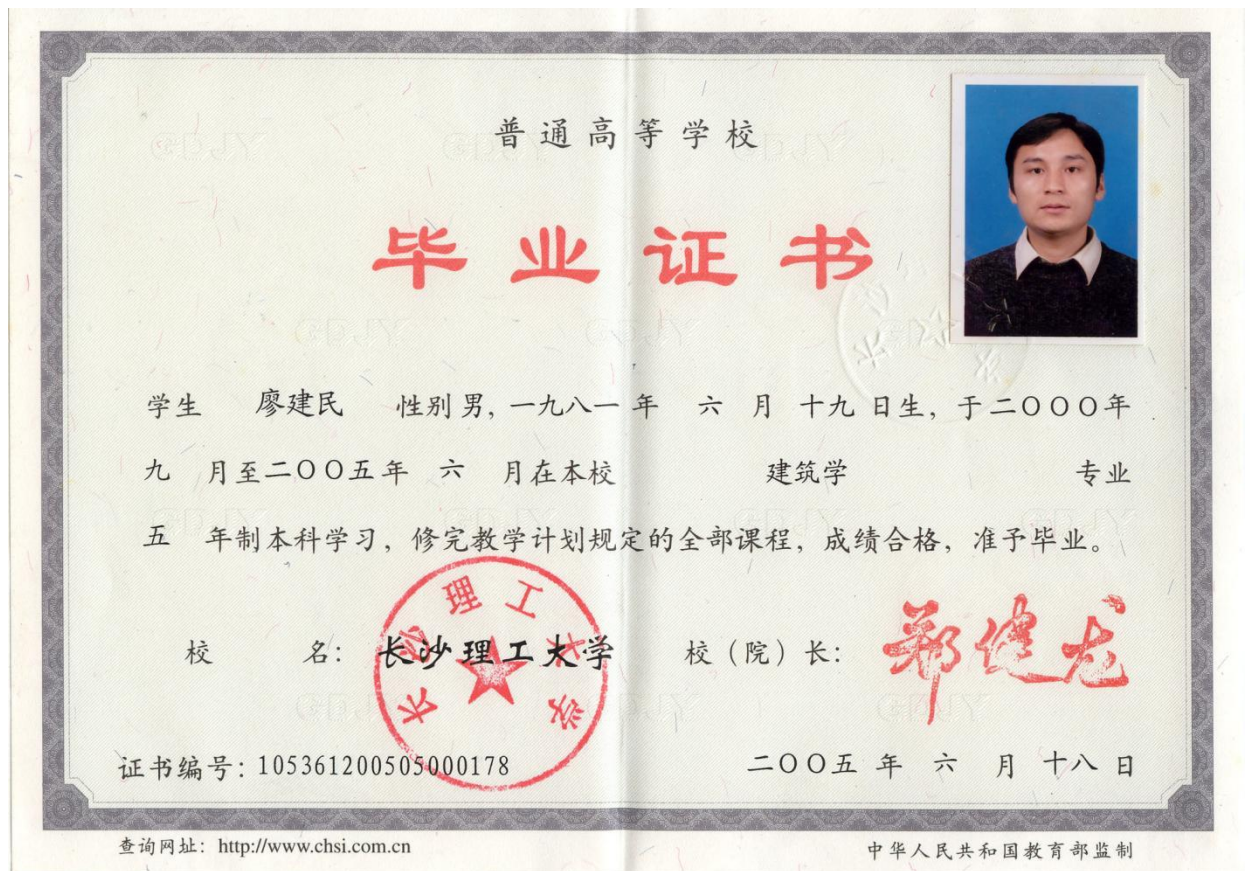 普通高等学校
毕业证书
学生 廖建民 性别男, 一九八一年 六 月 十九 日生, 于二〇〇〇年
九 月至二〇〇五年 六 月在本校 建筑学 专业
五 年制本科学习, 修完教学计划规定的全部课程, 成绩合格, 准予毕业。
校 名: 长沙理工大学 校(院)长: 郑健龙
长沙理工大学
证书编号: 105361200505000178 二〇〇五 年 六 月 十八 日
查询网址: http://www.chsi.com.cn 中华人民共和国教育部监制